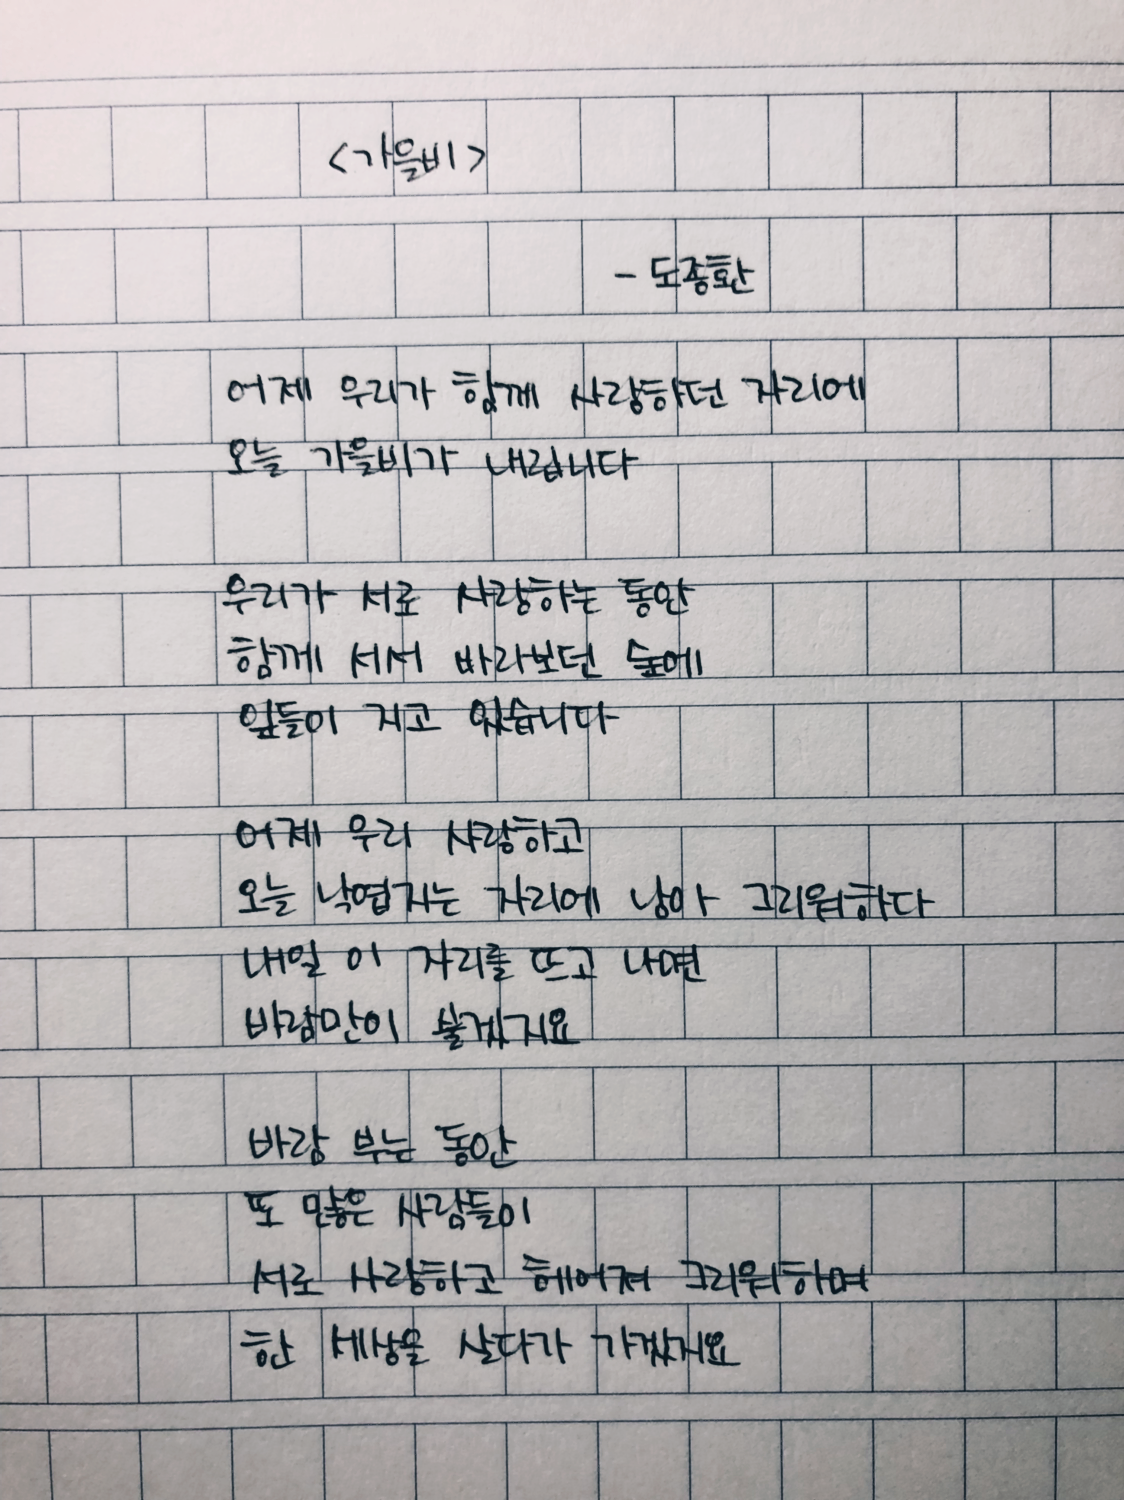 <가을비>
- 도종환
어제 우리가 함께 사랑하던 자리에
오늘 가을비가 내립니다
우리가 서로 사랑하는 동안
함께 서서 바라보던 숲에
잎들이 지고 있습니다
어제 우리 사랑하고
오늘 낙엽지는 자리에 남아 그리워하다
내일 이 자리를 뜨고 나면
바람만이 불겠지요
바람 부는 동안
또 많은 사람들이
서로 사랑하고 헤어져 그리워하며
한 세상을 살다가 가겠지요